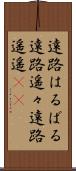 遠路はるばる
遠路遥々遠路
遥遥